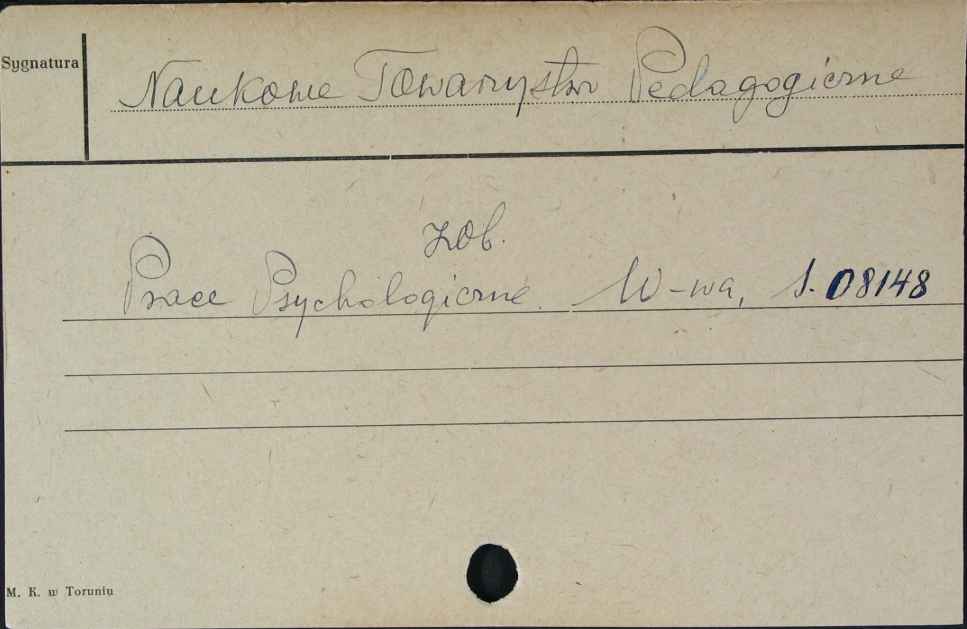 Sygnatura
Naukowe Towarzystwo Pedagogiczne
zob.
Prace Psychologiczne. W-wa, S. 08148
M. K. w Toruniu